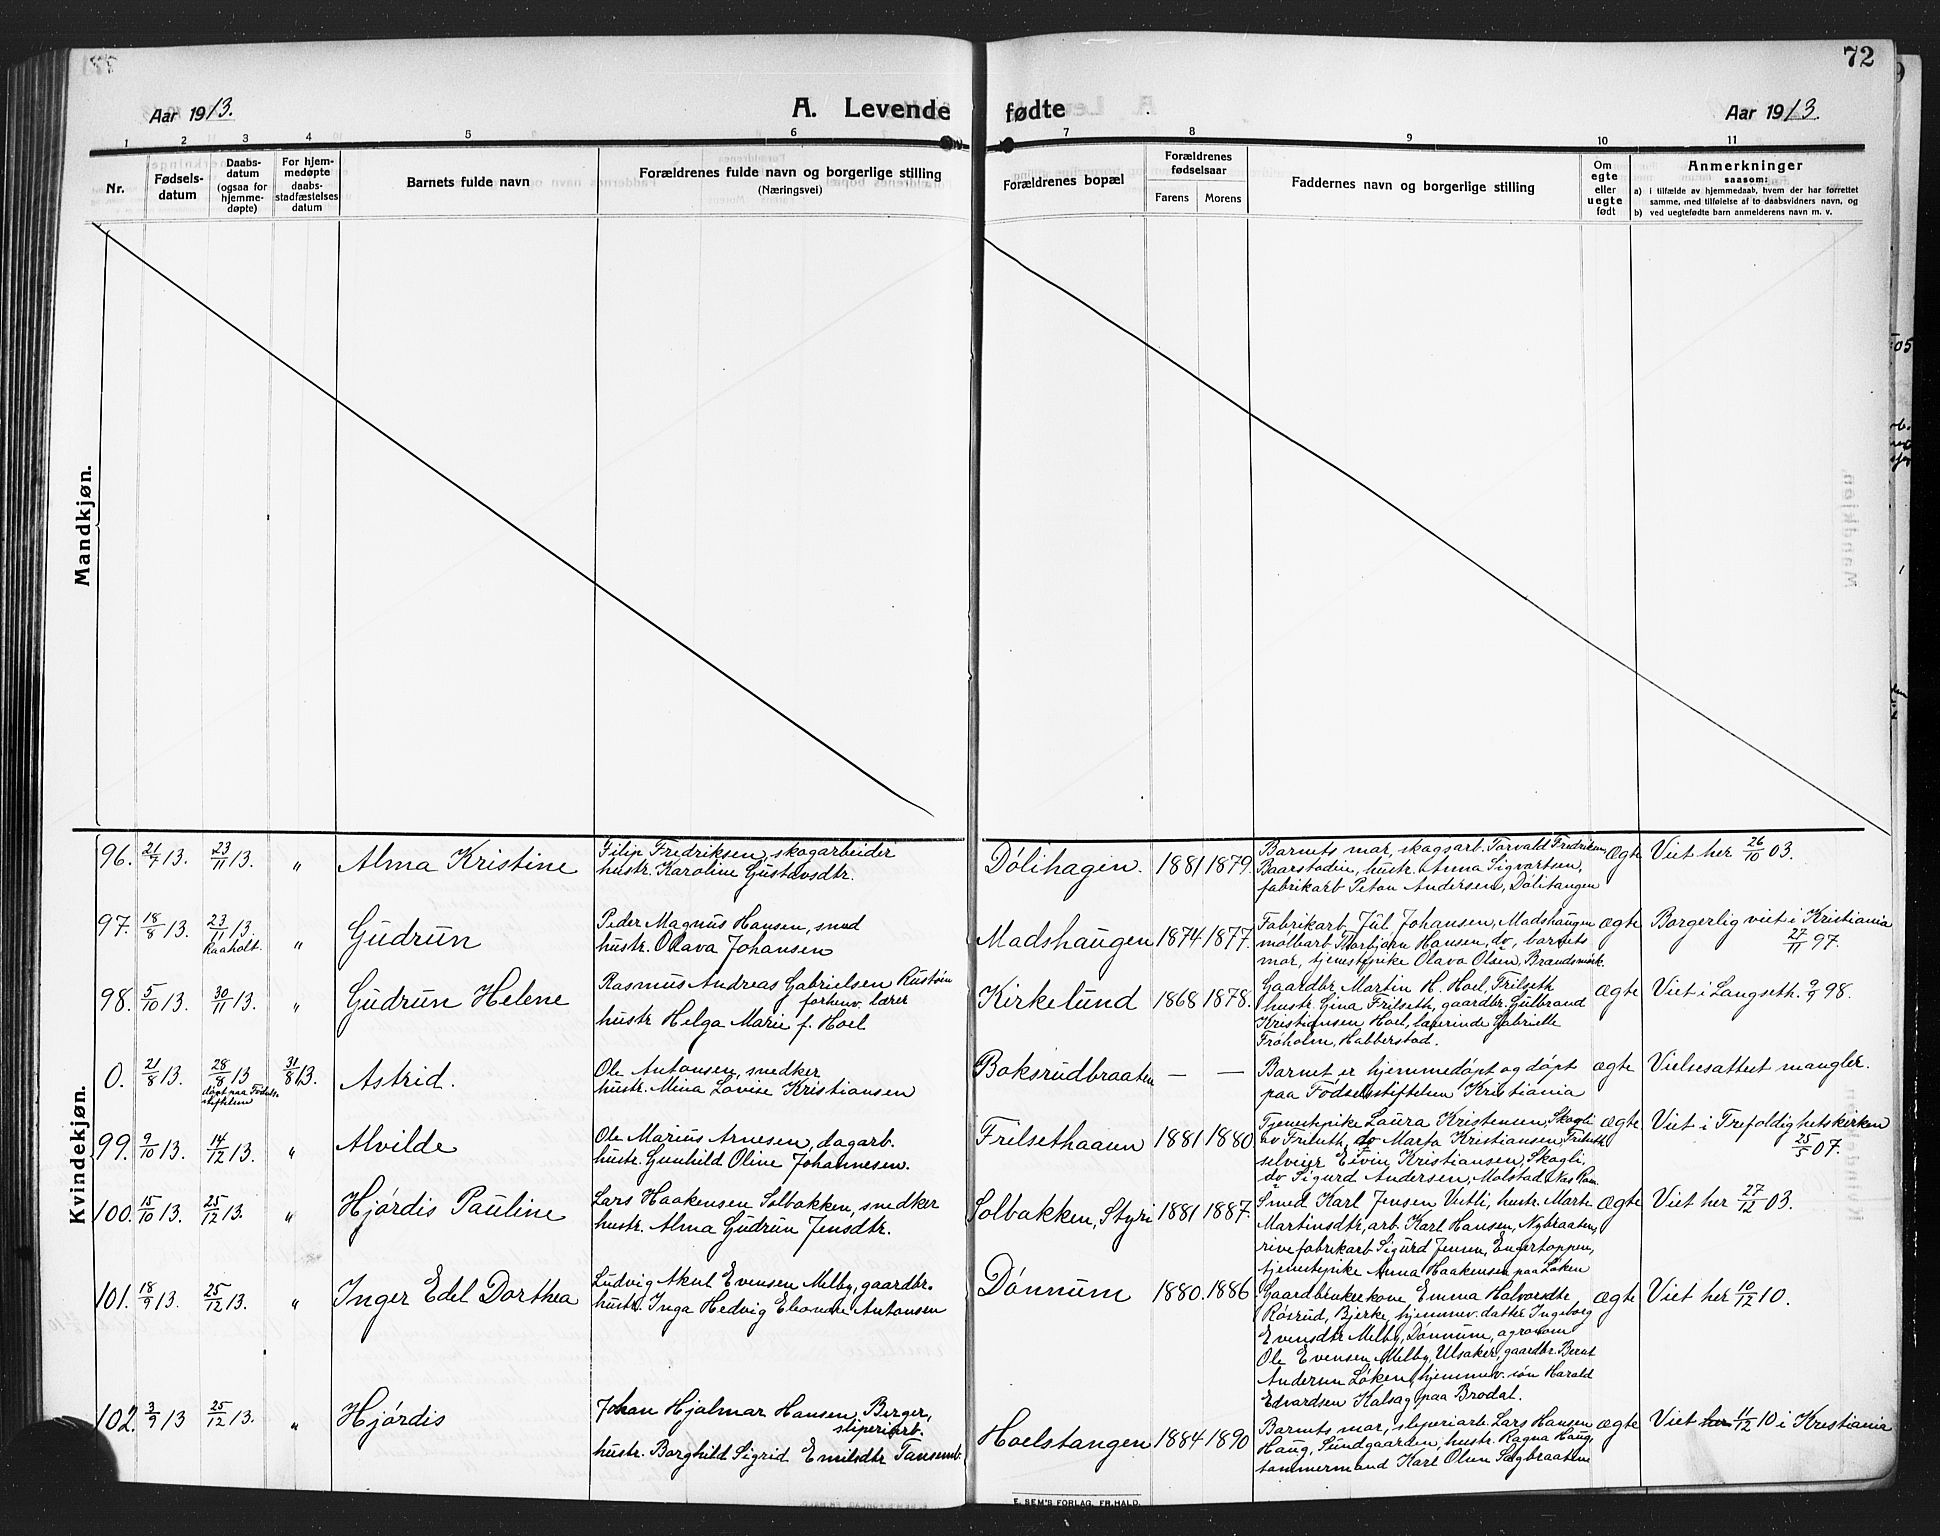 72
Aar 1913.
A. Levende fødte
Aar 1913.
1 2 3 4 5 6 7 8 9 10 11
Nr.
Fødsels-
datum
Daabs-
datum
(ogsaa for
hjemme-
døpte)
For hjem-
medøpte
daabs-
stadfæstelses
datum
Barnets fulde navn
Forældrenes fulde navn og borgerlige stilling
(Næringsvei)
Forældrenes bopæl
Forældrenes
fødselsaar
Farens Morens
Faddernes navn og borgerlige stilling
Om
egte
eller
uegte
født
Anmerkninger
saasom:
a) i tilfælde av hjemmedaab, hvem der har forrettet
samme, med tilføielse af to daabsvidners navn, og
b) ved uegtefødte barn anmelderens navn m. v.
Mandkjøn.
Kvindekjøn.
96. 21/7 13. 23/11 13. " Alma Kristine
Filip Fredriksen, skogarbeider
hustr. Karoline Gustavsdtr.
Dølihagen. 1881 1879.
Barnets mor, skogsarb. Torvald Fredriksen
Baarstadin, hustr. Anna Sigvartsen,
fabrikarb Peton Andersen, Dølitangen
ægte Viet her 26/10 03.
97. 18/8 13. 23/11 13. Raaholt. " Gudrun
Peder Magnus Hansen, smed
hustr. Olava Johansen
Madshaugen 1874 1877.
Fabrikarb. Jul. Johansen, Madshaugen
mølbarb Thorbjørn Hansen, do, barnets
mor, tjenestepike Olava Olsen, Brandsmørk.
ægte Borgerlig viet i Kristiania
27/11 97.
98. 5/10 13. 30/11 13. " Gudrun Helene
Rasmus Andreas Gabrielsen Rustøen
forhenv. lærer
hustr Helga Marie f. Hoel
Kirkelund 1868 1878.
Gaardbr Martin H. Hoel, Frilseth
hustr. Gina Frilseth, gaardbr. Gulbrand
Kristiansen Hoel, lærerinde Gabrielle
Frøholm, Habberstad.
ægte Viet i Langseth 9/9 98.
0. 21/8 13. 28/8 13 døpt paa Fødsels-
stiftelsen 31/8 13. Astrid.
Ole Antonsen, snedker
hustr. Mina Lovise Kristiansen
Boksrudbraaten — —
Barnet er hjemmedøpt og døpt
paa Fødselsstiftelsen Kristiania
ægte Vielsesattest mangler.
99. 9/10 13. 14/12 13. " Alvilde
Ole Marius Arnesen, dagarb.
hustr. Gunhild Oline Johannesen.
Frilsethaaen 1881 1880
Tjenestepike Laura Kristensen, Skogli
av Frilseth, do Marta Kristiansen, Frilseth
selveier Eivin Kristiansen, Skogli,
do Sigurd Andersen, Molstad, Næs Rom.
ægte Viet i Trefoldighetskirken
25/5 07.
100. 15/10 13. 25/12 13. " Hjørdis Pauline
Lars Haakensen Solbakken, snedker
hustr. Alma Gudrun Jensdtr.
Solbakken, Styri 1881 1887.
Smed Karl Jensen Vetli, hustr. Marte
Martinsdtr, arb. Karl Hansen, Nybraaten,
rivefabrikarb Sigurd Jensen, Engertoppen,
tjenestepike Anna Haakensen paa Løken
ægte Viet her 27/12 03.
101. 18/9 13. 25/12 13. " Inger Edel Dorthea
Ludvig Akul Evensen Melby, gaardbr.
hustr. Inga Hedvig Eleonore Antonsen
Dønnum 1880. 1886
Gaardbrukerkone Emma Halvorsdtr
Røsrud, Bjerke, hjemmev. datter Ingeborg
Evensdtr Melby, Dønnum, agronom
Ole Evensen Melby, Ulsaker, gaardbr. Bernt
Andersen Løken, hjemmev. søn Harald
Edvardsen Kalsag paa Brodal.
ægte Viet her 10/12 10.
102. 3/9 13 25/12 13. " Hjørdis
Johan Hjalmar Hansen, Berger,
sliperiarb.
hustr. Borghild Sigrid Emilsdtr Tansemb.
Hoelstangen 1884 1890
Barnets mor, sliperiarb. Lars Hansen
Haug, Sundgaarden, hustr. Ragna Haug,
tømmermand Karl Olsen Sagbraaten
ægte Viet her 11/12 10 i Kristiania
E. SEM'S FORLAG, FR.HALD.